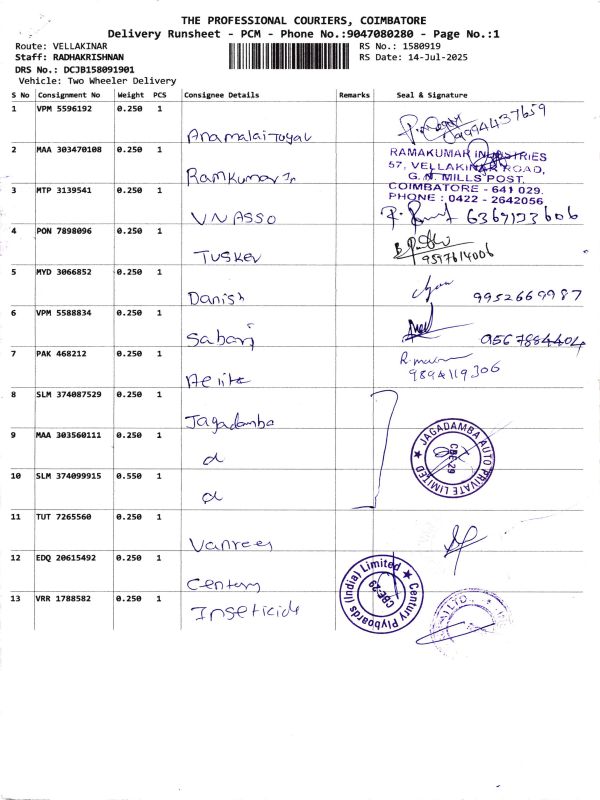 THE PROFESSIONAL COURIERS, COIMBATORE
Delivery Runsheet - PCM - Phone No.:9047080280 - Page No.:1
Route: VELLAKINAR RS No.: 1580919
Staff: RADHAKRISHNAN RS Date: 14-Jul-2025
DRS No.: DCJB158091901
Vehicle: Two Wheeler Delivery
S No Consignment No Weight PCS Consignee Details Remarks Seal & Signature
1 VPM 5596192 0.250 1
Anamalai Toyal 9994437659
2 MAA 303470108 0.250 1
Ramkumar In
RAMAKUMAR INDUSTRIES
57, VELLAKINAR ROAD,
G.N. MILLS POST,
COIMBATORE - 641 029.
PHONE : 0422 - 2642056
3 MTP 3139541 0.250 1
VN ASSO 6369123606
4 PON 7898096 0.250 1
Tusker 9597614006
5 MYD 3066852 0.250 1
Danish 9952669987
6 VPM 5588834 0.250 1
Sabari 9567884404
7 PAK 468212 0.250 1
9894119306
8 SLM 374087529 0.250 1
Jagadamba
9 MAA 303560111 0.250 1
d
JAGADAMBA AUTO PRIVATE LIMITED
CBE-29
10 SLM 374099915 0.550 1
d
11 TUT 7265560 0.250 1
Vanrees
12 EDQ 20615492 0.250 1
Century
Century Plyboards (India) Limited
CBE-29
13 VRR 1788582 0.250 1
Inseticide